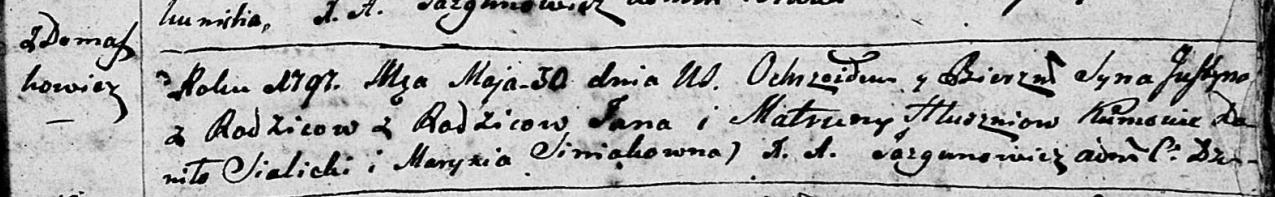 kumistia, X. A. Jazgunowicz
z Domasz
kowicz
Roku 1797. Msca Maja 30 dnia Us. Ochrzciłem y Bierzm Syna Justyna
z Rodzicow z Rodzicow Jana i Matruny Hłuszniow Kumowie Da
niło Sialicki i Maryna Siniakowna X. A. Jazgunowicz adm C. Dzie-